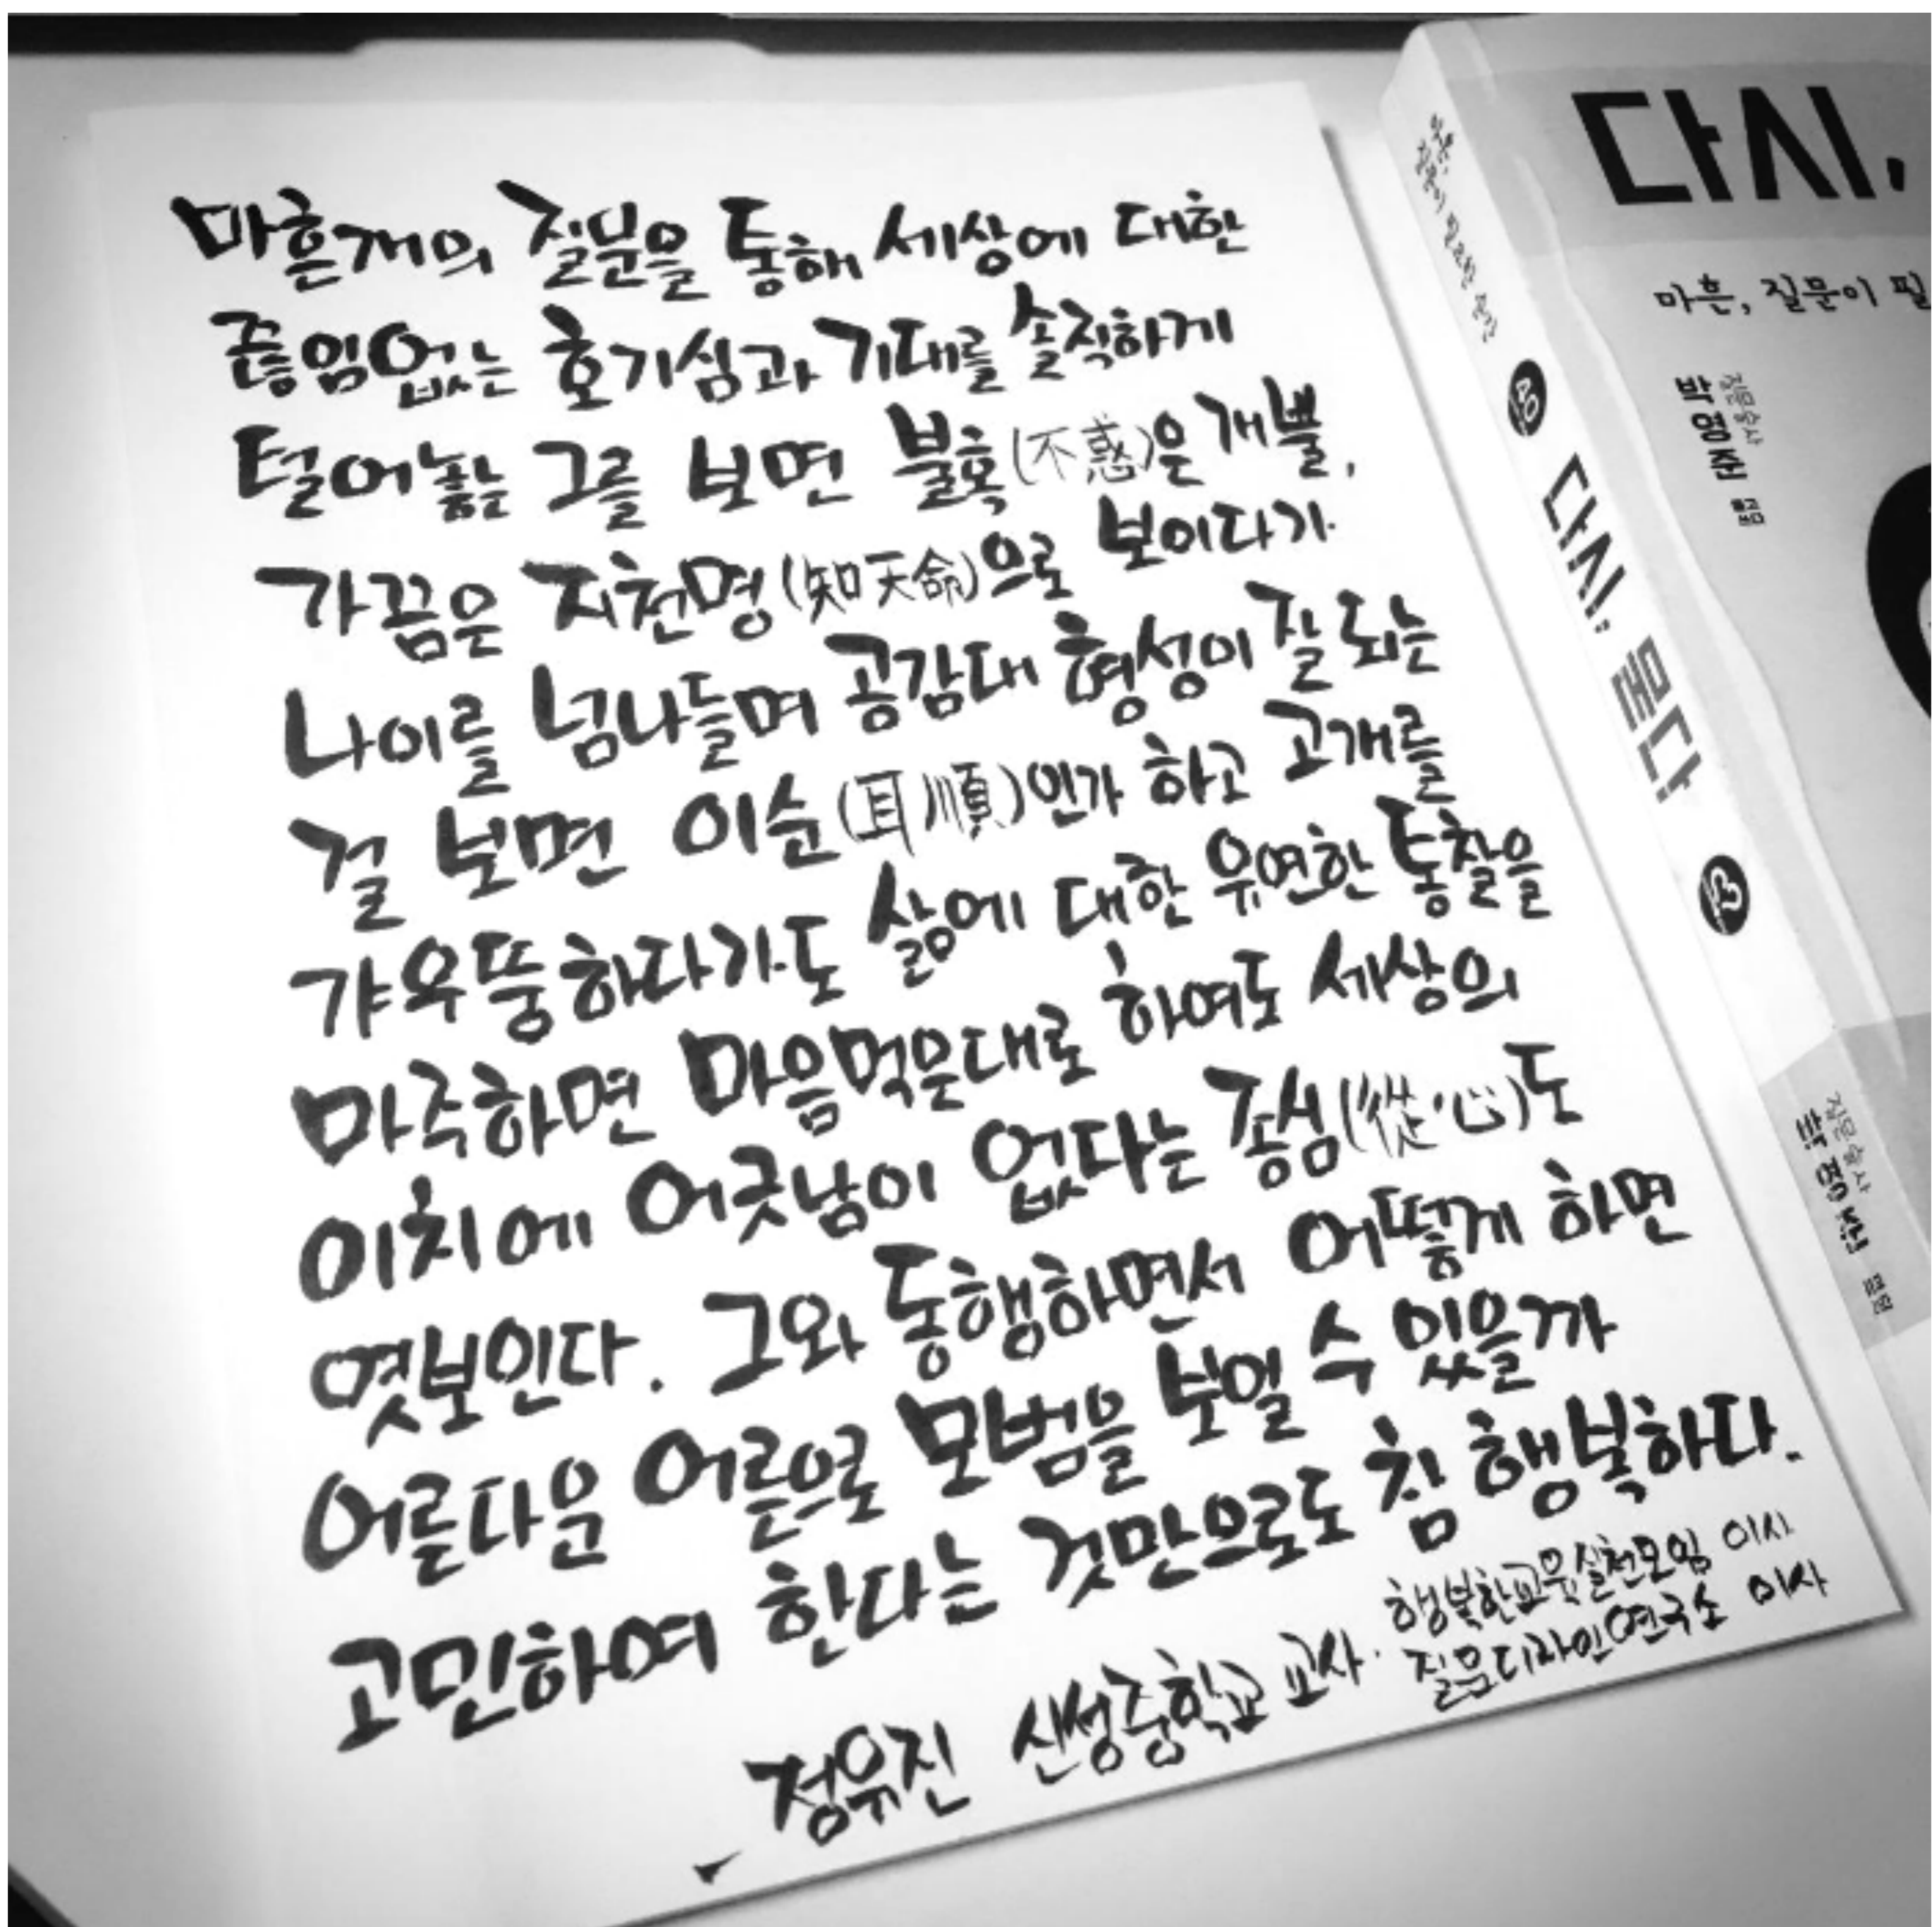 마흔개의 질문을 통해 세상에 대한
끊임없는 호기심과 기대를 솔직하게
털어놓는 그를 보면 불혹(不惑)은 개뿔,
가끔은 지천명(知天命)으로 보이다가
나이를 넘나들며 공감대 형성이 잘 되는
걸 보면 이순(耳順)인가 하고 고개를
갸우뚱하다가도 삶에 대한 유연한 통찰을
마주하면 마음먹은대로 하여도 세상의
이치에 어긋남이 없다는 종심(從心)도
엿보인다. 그와 동행하면서 어떻게 하면
어름다운 어른으로 모범을 보일 수 있을까
고민하여 한다는 것만으로도 참 행복하다.
정유진 신성중학교 교사·
행복한교육실천모임 이사
질문디자인연구소 이사
다시,
마흔, 질문이 필
질문술사
박영준
다시, 묻다
질문술사
박영준